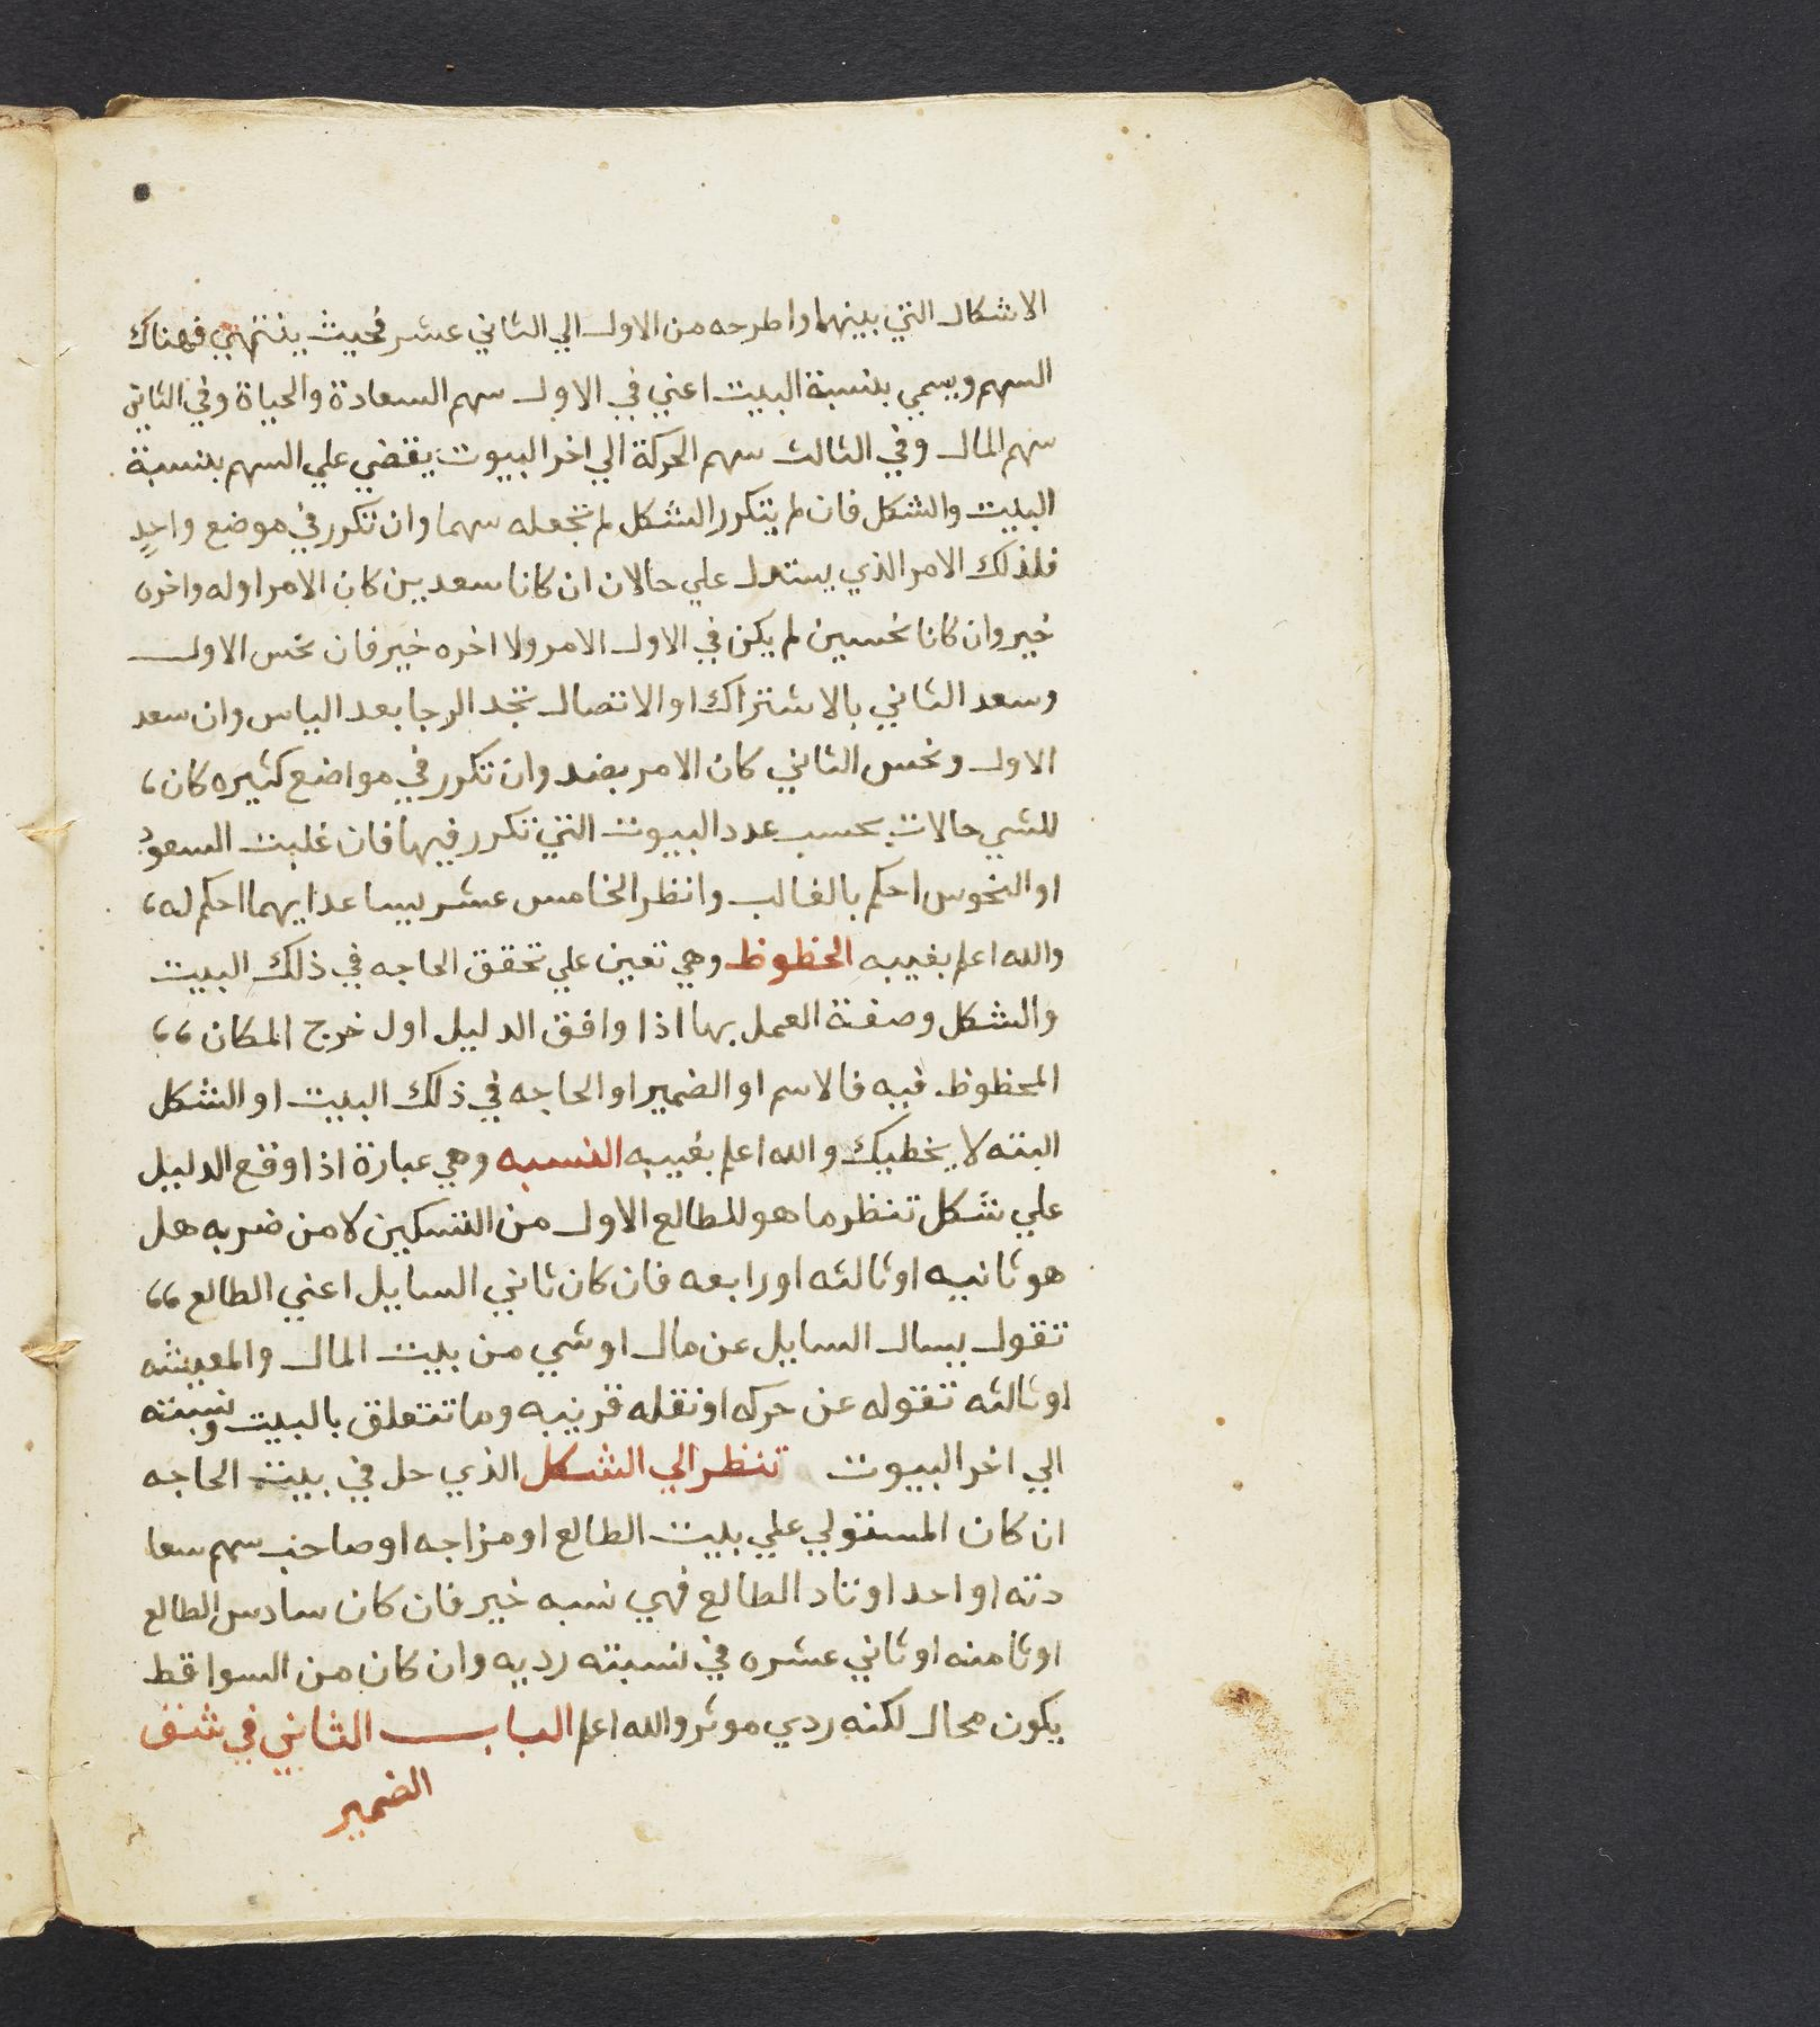 الاشكال التي بينهما واطرحه من الاول الي الثاني عشر فحيث ينتهي فهناك
السهم ويسمي بنسبة البيت اعني في الاول سهم السعادة والحياة وفي الثاني
سهم المال وفي الثالث سهم الحركة الي اخر البيوت يقضي علي السهم بنسبة
البيت والشكل فان لم يتكرر الشكل لم تجعله سهما وان تكرر في موضع واحدٍ
فلذلك الامر الذي يستدل علي حالان ان كانا سعدين كان الامر اوله واخره
خير وان كانا نحسين لم يكن في الاول الامر ولا اخره خير فان نحس الاول
وسعد الثاني بالاشتراك او الاتصال تجد الرجا بعد الياس وان سعد
الاول ونحس الثاني كان الامر بضد وان تكرر في مواضع كثيره كان،
للشي حالات بحسب عدد البيوت التي تكرر فيها فان غلبت السعودُ
او النحوس احكم بالغالب وانظر الخامس عشر يساعد ايهما احكم له،
والله اعلم بغيبه الحظوظ وهي تعين علي تحقق الحاجه في ذلك البيت
والشكل وصفة العمل بها اذا وافق الدليل اول خرج المكان ،،
المحظوظ فيه فالاسم او الضمير او الحاجه في ذلك البيت او الشكل
البته لا يخطيك والله اعلم بغيبه النسبه وهي عبارة اذا وقع الدليل
علي شكل تنظر ما هو للطالع الاول من التسكين لا من ضربه هل
هو ثانيه او ثالثه او رابعه فان كان ثاني السايل اعني الطالع ،،
تقول يسال السايل عن مال او شي من بيت المال والمعيشه
او ثالثه تقوله عن حركه او نقله قريبه وما تتعلق بالبيت ونسبته
الي اخر البيوت تنظر الي الشكل الذي حل في بيت الحاجه
ان كان المستولي علي بيت الطالع او مزاجه او صاحب سهم سعا
دته او احد اوتاد الطالع فهي نسبه خير فان كان سادس الطالع
او ثامنه او ثاني عشره في نسبته رديه وان كان من السواقط
يكون محال لكنه ردي موثر والله اعلم البـاب الثاني في شنف
الضمير